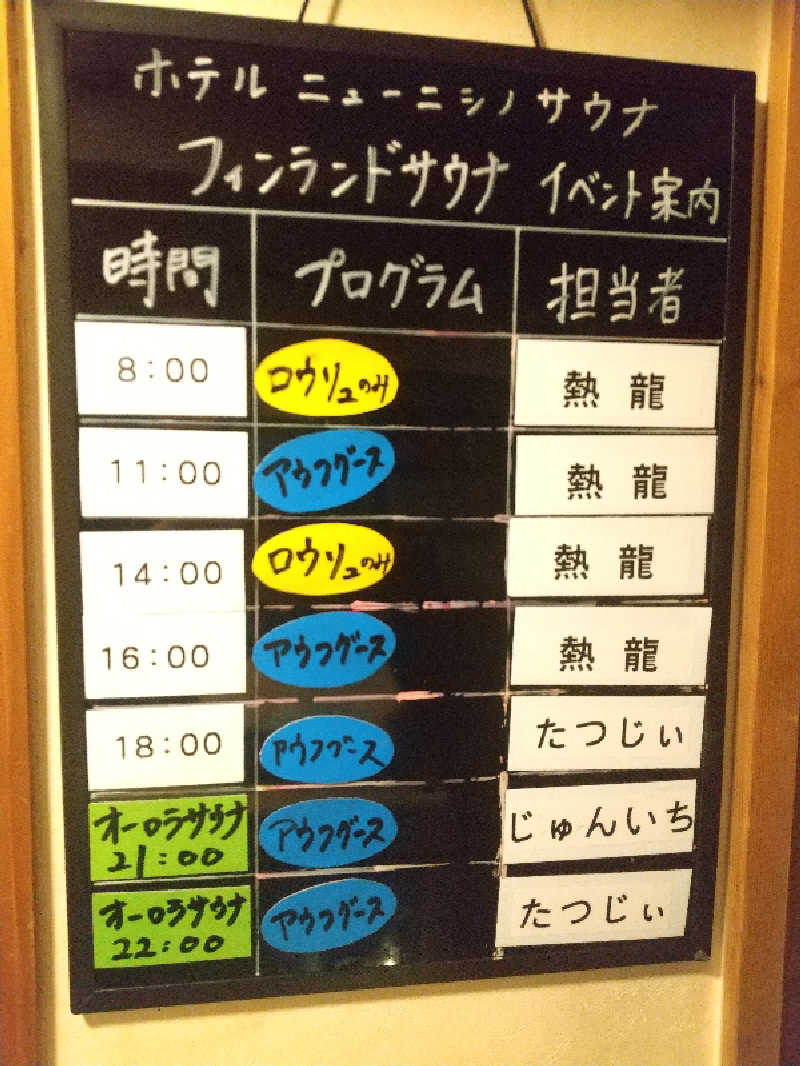 ホテル ニューニシノ サウナ
フィンランドサウナ イベント案内
時間 プログラム 担当者
8:00 ロウリュのみ 熱龍
11:00 アウフグース 熱龍
14:00 ロウリュのみ 熱龍
16:00 アウフグース 熱龍
18:00 アウフグース たつじぃ
オーロラサウナ
21:00 アウフグース じゅんいち
オーロラサウナ
22:00 アウフグース たつじぃ